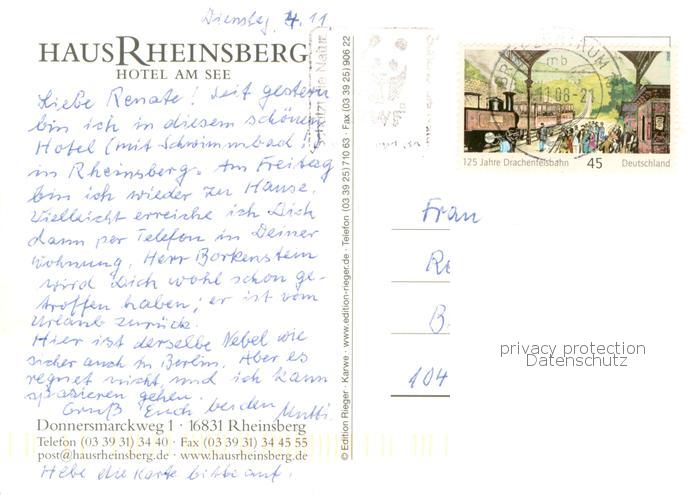 Dienstag 4.11
HAUS RHEINSBERG
HOTEL AM SEE
Liebe Renate! Seit gestern
bin ich in diesem schönen
Hotel (mit Schwimmbad!)
in Rheinsberg. Am Freitag
bin ich wieder zu Hause.
Vielleicht erreiche ich Dich
dann per Telefon in Deiner
Wohnung. Herr Borkenstein
wird Dich wohl schon ge-
troffen haben; er ist vom
Urlaub zurück.
Hier ist derselbe Nebel wie
sicher auch in Berlin. Aber es
regnet nicht, und ich kann
spazieren gehen.
Gruß Euch beiden Mutti.
Donnersmarckweg 1 · 16831 Rheinsberg
Telefon (03 39 31) 34 40 · Fax (03 39 31) 34 45 55
post@hausrheinsberg.de · www.hausrheinsberg.de
Hebe die Karte bitte auf.
© Edition Rieger · Karwe · www.edition-rieger.de · Telefon (03 39 25) 710 63 · Fax (03 39 25) 906 22
mb
125 Jahre Drachenfelsbahn 45 Deutschland
Frau
104
privacy protection
Datenschutz